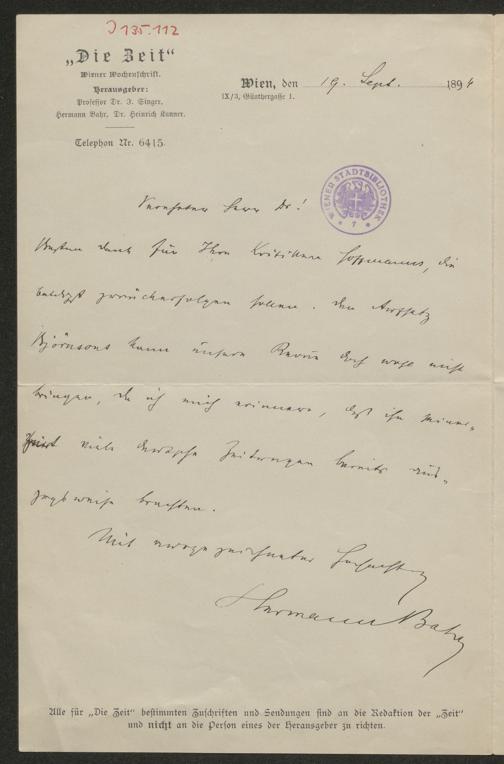 J 135.112
„Die Zeit“
Wiener Wochenschrift.
Herausgeber:
Professor Dr. J. Singer,
Hermann Bahr, Dr. Heinrich Kanner.
Telephon Nr. 6415.
Wien, den 19. Sept. 1894
IX/3, Günthergasse 1.
WIENER STADTBIBLIOTHEK
Verehrter Herr Dr!
Besten Dank für Ihre Kritiken Hoffmanns, die
zurückerfolgen sollen. Den Aufsatz
Björnsons kann unsere Revue doch wohl nicht
bringen, da ich mich erinnere, daß ihn seiner-
zeit viele deutsche Zeitungen bereits aus-
zugsweise brachten.
Mit ausgezeichneter Hochachtung
Hermann Bahr
Alle für „Die Zeit“ bestimmten Zuschriften und Sendungen sind an die Redaktion der „Zeit“
und nicht an die Person eines der Herausgeber zu richten.